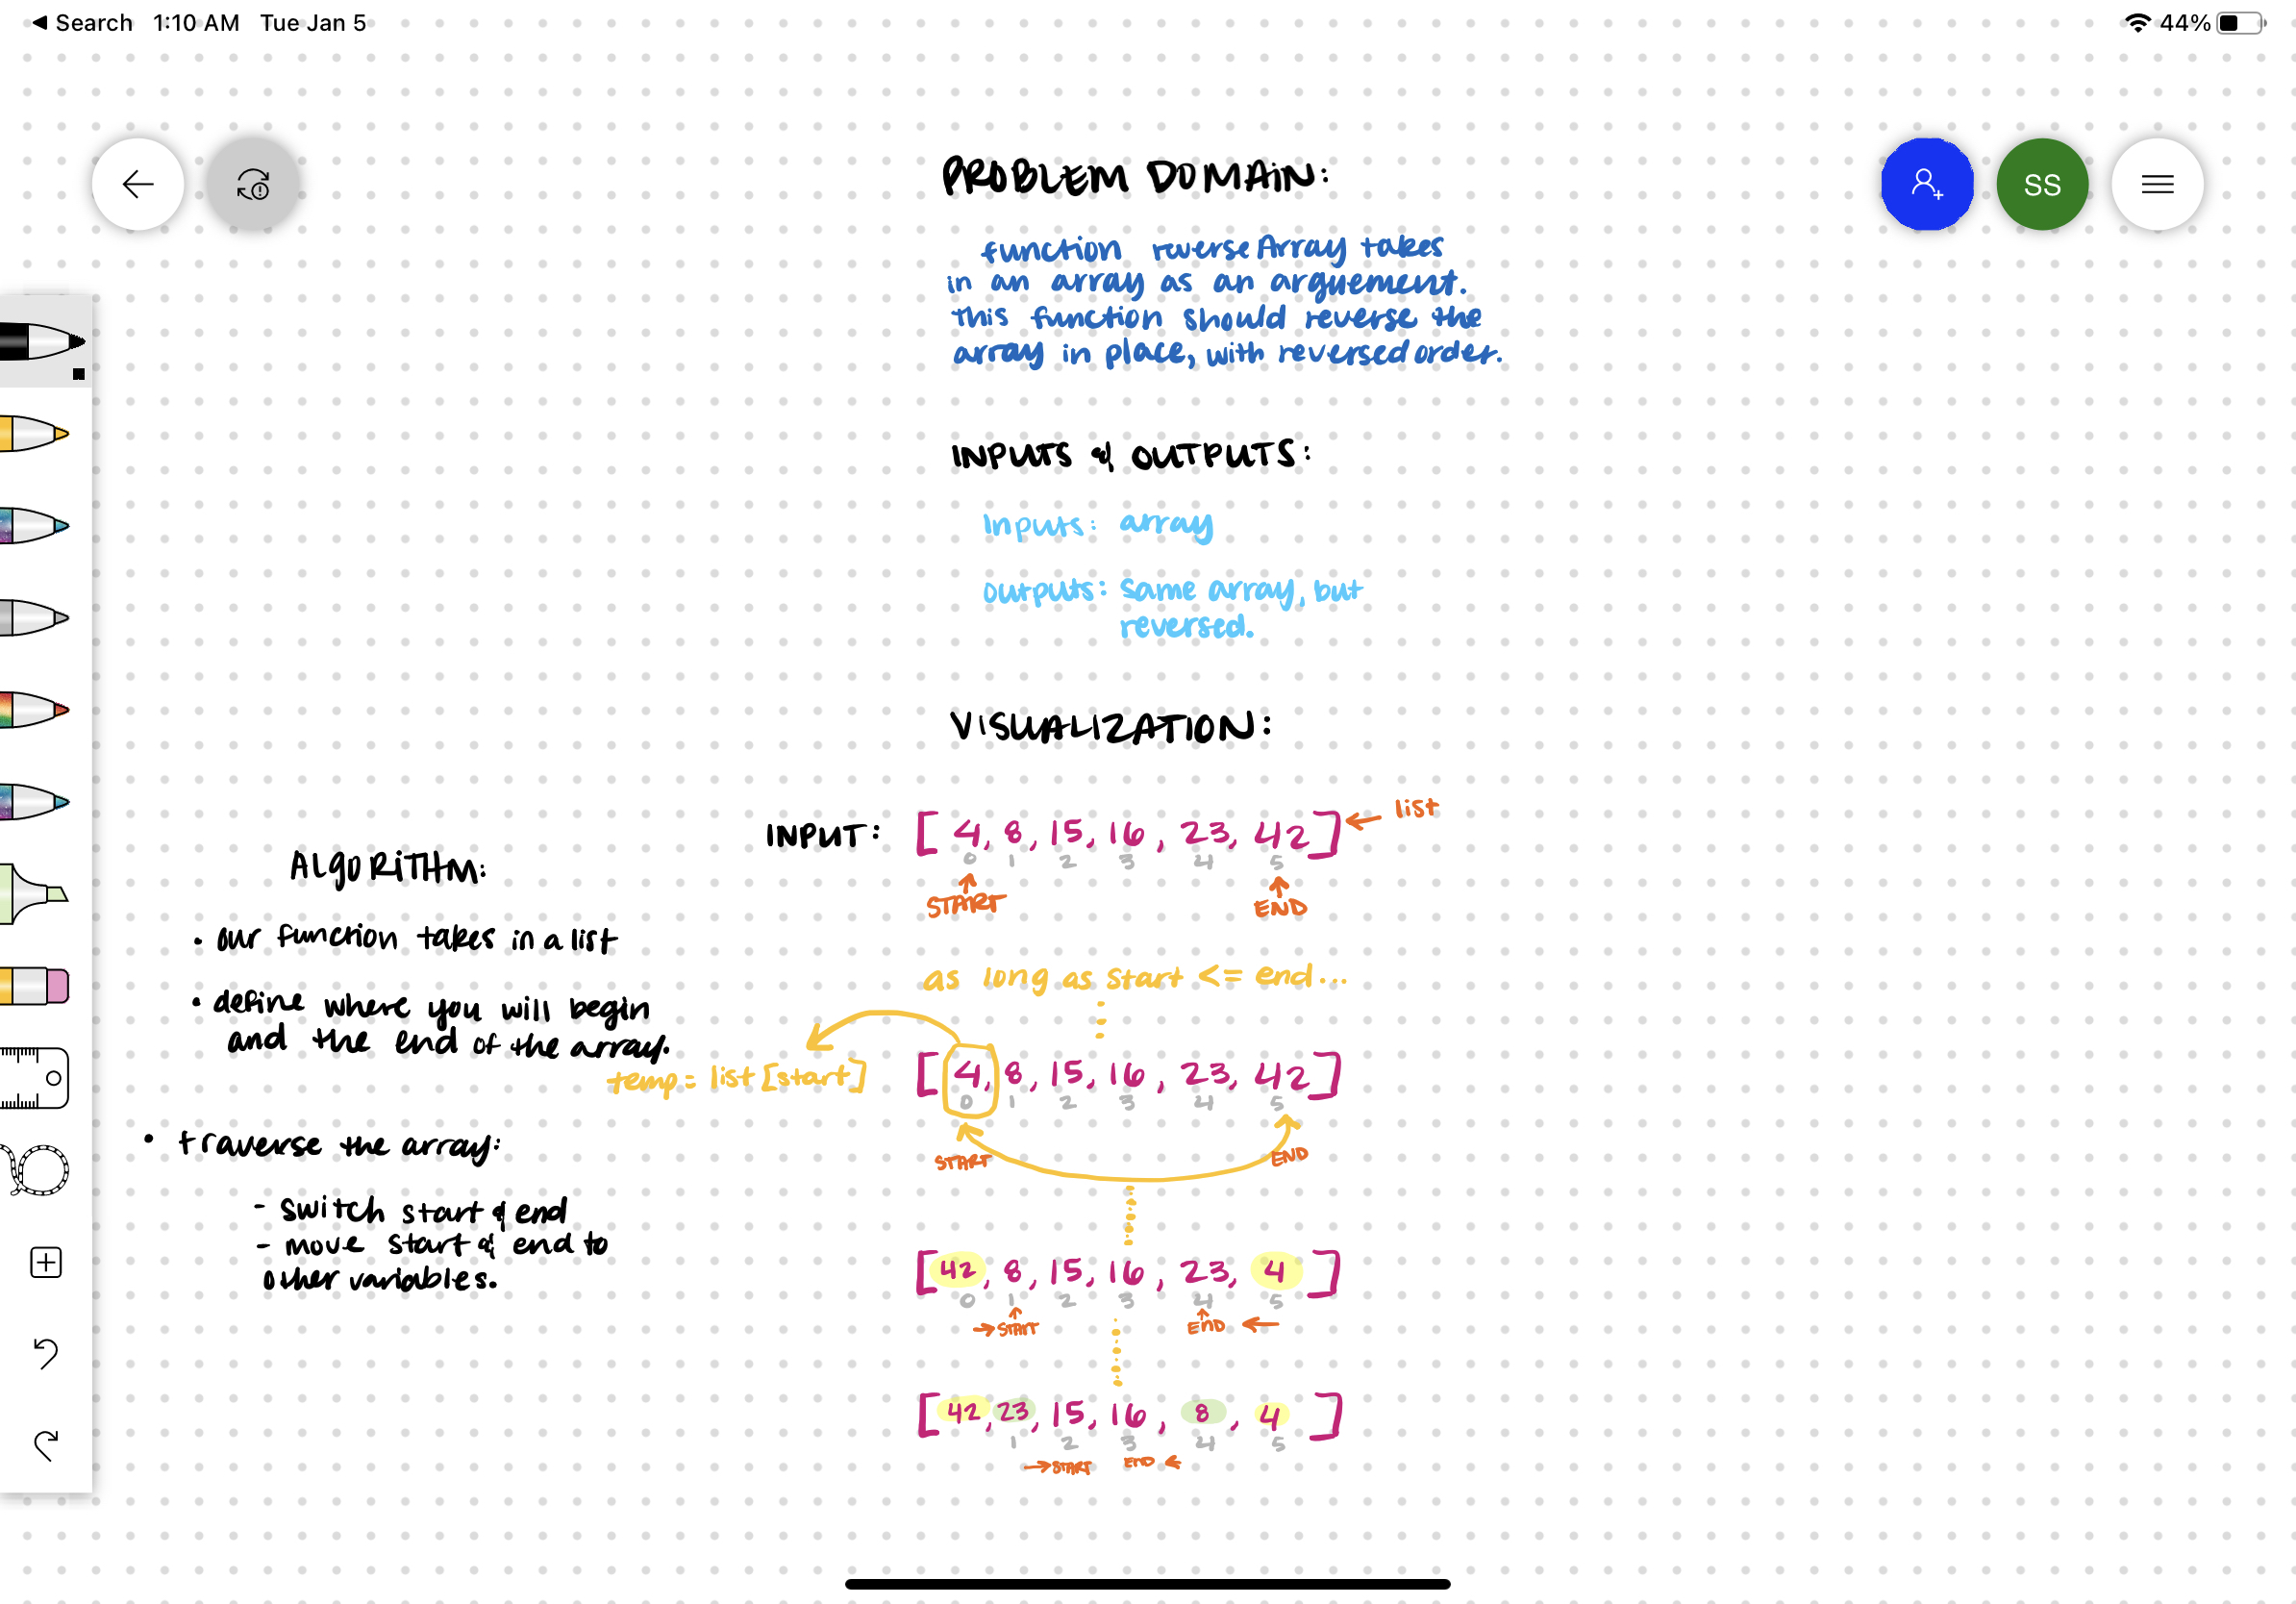 Search 1:10 AM Tue Jan 5
44%
SS
PROBLEM DOMAIN:
function reverseArray takes
in an array as an arguement.
this function should reverse the
array in place, with reversed order.
INPUTS & OUTPUTS:
Inputs: array
outputs: same array, but
reversed.
VISUALIZATION:
INPUT: [4, 8, 15, 16, 23, 42] ← list
0 1 2 3 4 5
START END
as long as start <= end...
temp = list [start]
[4, 8, 15, 16, 23, 42]
0 1 2 3 4 5
START END
[42, 8, 15, 16, 23, 4]
0 1 2 3 4 5
→ START END ←
[42, 23, 15, 16, 8, 4]
1 2 3 4 5
→ START END ←
ALgORITHM:
• our function takes in a list
• define where you will begin
and the end of the array.
• traverse the array:
- switch start & end
- move start & end to
other variables.